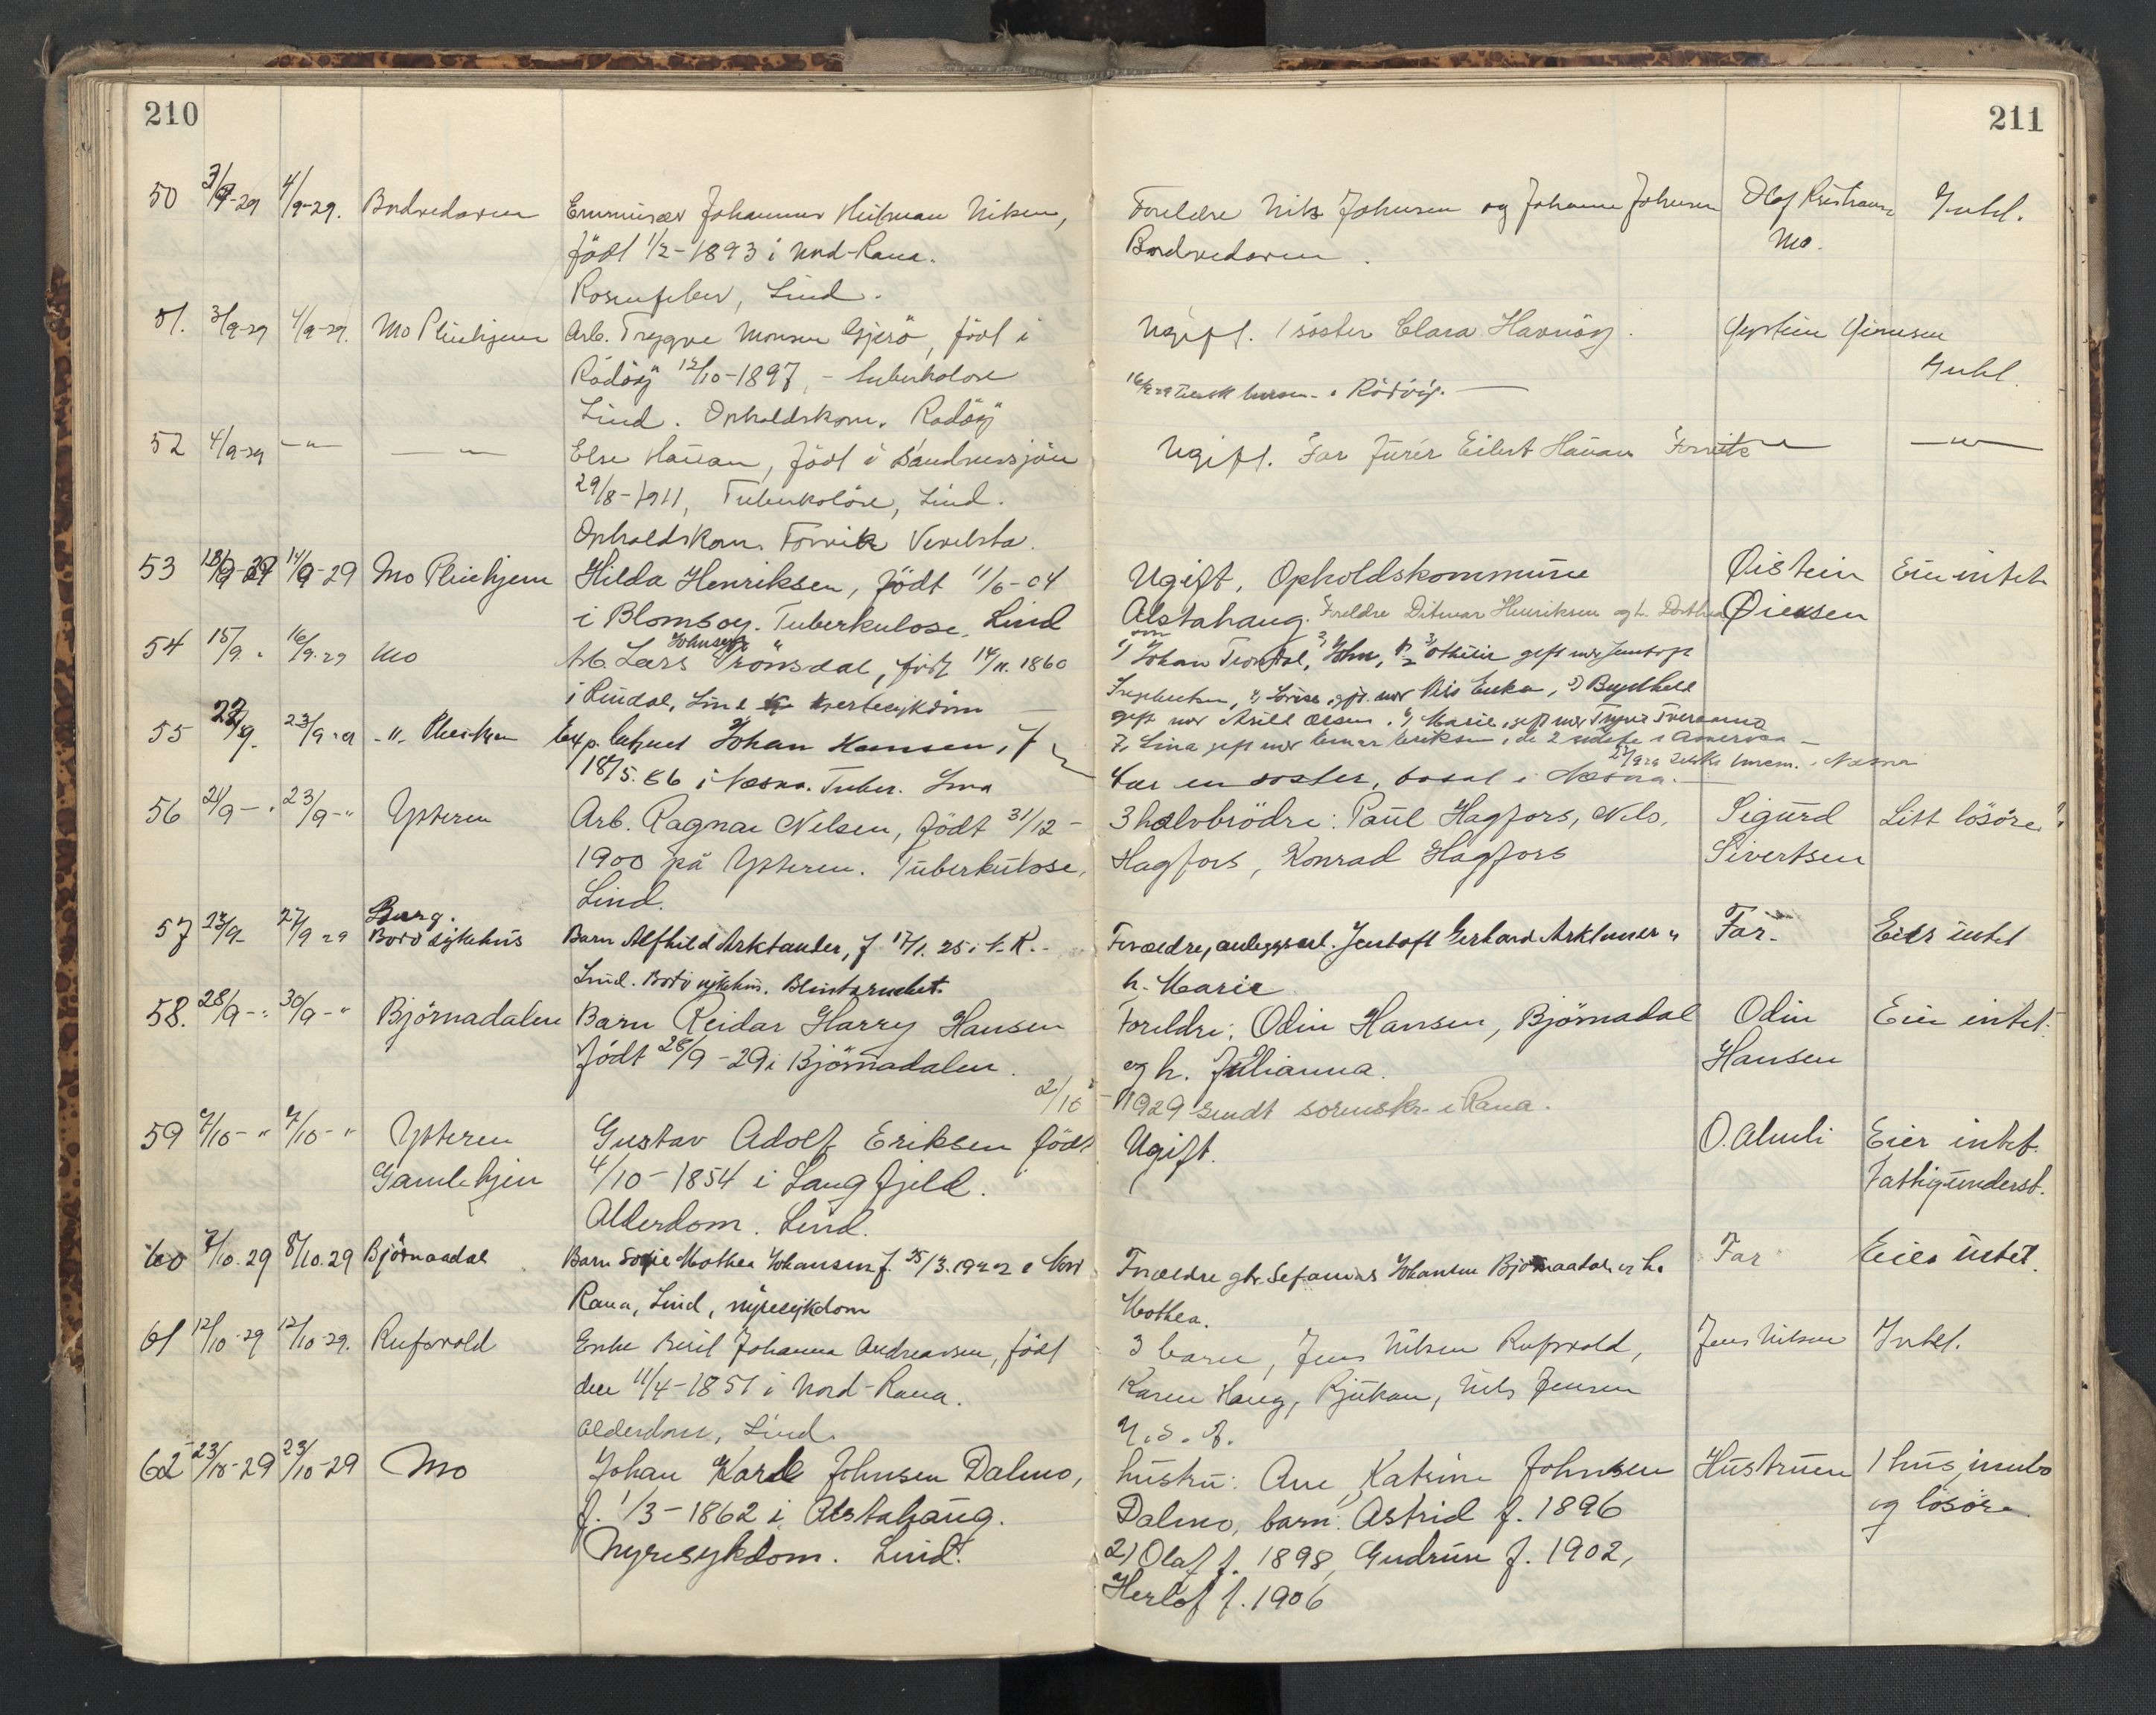 210
50 3/9-29 4/9-29. Bordvedaren Emmisær Johannes Hilman Nilsen,
født 1/2-1893 i Nord-Rana.
Rosenfeber, Lind.
51. 3/9-29 4/9-29. Mo Pleiehjem Arb. Trygve Monsen Gjerö, født i
Rödöy 12/10-1897, - tuberkolose
Lind. Opholdskom. Rödöy
52 4/9-29 -"- -"- Else Hauan, född i Sandnessjöen
29/8-1911, Tuberkolöse, Lind.
Opholdskom. Forvik Vevelsta.
53 13/9-29 14/9-29 Mo Pleiehjem Hilda Henriksen, födt 11/6-04
i Blomsøy. Tuberkulose. Lind
54 15/9 " 16/9-29 Mo Arb. Lars Johnsen Trönsdal, født 14/11. 1860
i Rindal, Lind hjertesykdom
55 22/9. 23/9 29 -"- Pleiehjem Exp. Johan Hansen, f
18/5.86 i Nesna. Tuber. Lind
56 21/9-" 23/9-" Ytteren Arb. Ragnar Nilsen, födt 31/12-
1900 på Ytteren. Tuberkulose,
Lind.
57 23/9- 27/9 29 Burg. Bodö sykehus Barn Alfhild Arktander, f. 17/1. 25 i N.R.-
Lind. Bodö sykehus. Blindtarmbet.
58. 28/9-" 30/9-" Bjørnadalen Barn Reidar Harry Hansen
födt 28/9-29 i Björnadalen.
59 4/10-" 7/10-" Ytteren Gustav Adolf Eriksen födt
Gamlehjem 4/10-1854 i Langfjeld.
Alderdom. Lind.
60 7/10.29 8/10.29 Björnaadal Barn Sofie Mothea Johansen f. 25/3.1922 i Nord
Rana, Lind, nyresykdom
61 12/10-29 12/10-29. Rufsvold Enke Beret Johanna Andreassen, født
den 11/4-1851 i Nord-Rana.
Alderdom, Lind.
62 23/10-29 23/10-29 Mo Johan Karl Johnsen Dalmo,
f. 1/3-1862 i Alstahaug.
Nyresykdom. Lind.
211
Foreldre Nils Johnsen og Johanna Johnsen Olaf Kristiansen Intet.
Bordvedaren. Mo.
Ugift. 1 söster Clara Havnöy. Øystein Øiensen
Intet.
i Rödöy.
Ugift. Far Furér Eilert Hauan Forvik -"- -"-
Ugift, Opholdskommune Øistein Eier intet
Alstahaug. Foreldre Ditmar Henriksen og h. Dorthea Øiensen
1) Johan Trondal, 2) John, 3) Othilie gift med
4) Lovise, gift med Nils Enka, 5) Borghild
gift med Arild Olsen. 6) Marie, gift med Trygve Tveraamo
7, Lina gift med Einar Eriksen, de 2 sidste i Amerika -
i Nesna
Har en søster, bosat i Nesna.
3 halvbrödre: Paul Hagfors, Nils, Sigurd Litt lösöre
Hagfors, Konrad Hagfors Sivertsen
Forældre, anleggsarb. Jentoft Gerhard Arktander og Far. Eier intet
h. Marie
Foreldre: Odin Hansen, Björnadal Odin Eier intet.
og h. Julianna. Hansen
2/10-1929 Sendt sorenskr. i Rana.
Ugift. O. Almli Eier intet.
Fattigunderst.
Forældre gbr. Sefanias Johansen Bjørnaadal og h. Far Eier intet.
Mothea.
3 barn, Jens Nilsen Rufsvold, Jens Nilsen Intet.
Karen Haug, Rjukan, Nils Jensen
U.S.A.
Hustru: Ane Katrine Johnsen Hustruen 1 hus, innbo
Dalmo, barn: 1) Astrid f. 1896 og lösöre
2) Olaf f. 1898, Gudrun f. 1902,
Herlof f. 1906